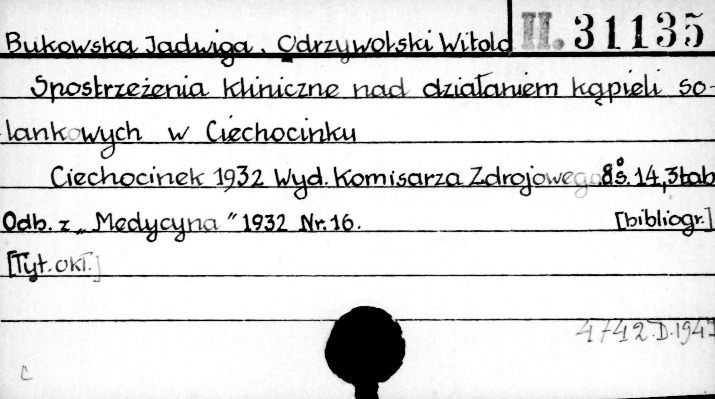 Bukowska Jadwiga, Odrzywolski Witold II. 31135
Spostrzeżenia kliniczne nad działaniem kąpieli so-
lankowych w Ciechocinku
Ciechocinek 1932 Wyd. Komisarza Zdrojowego 8° s. 14, 3 tab
Odb. z „Medycyna” 1932 Nr. 16. [bibliogr.]
[Tyt. okł.]
4742.D.1947
c